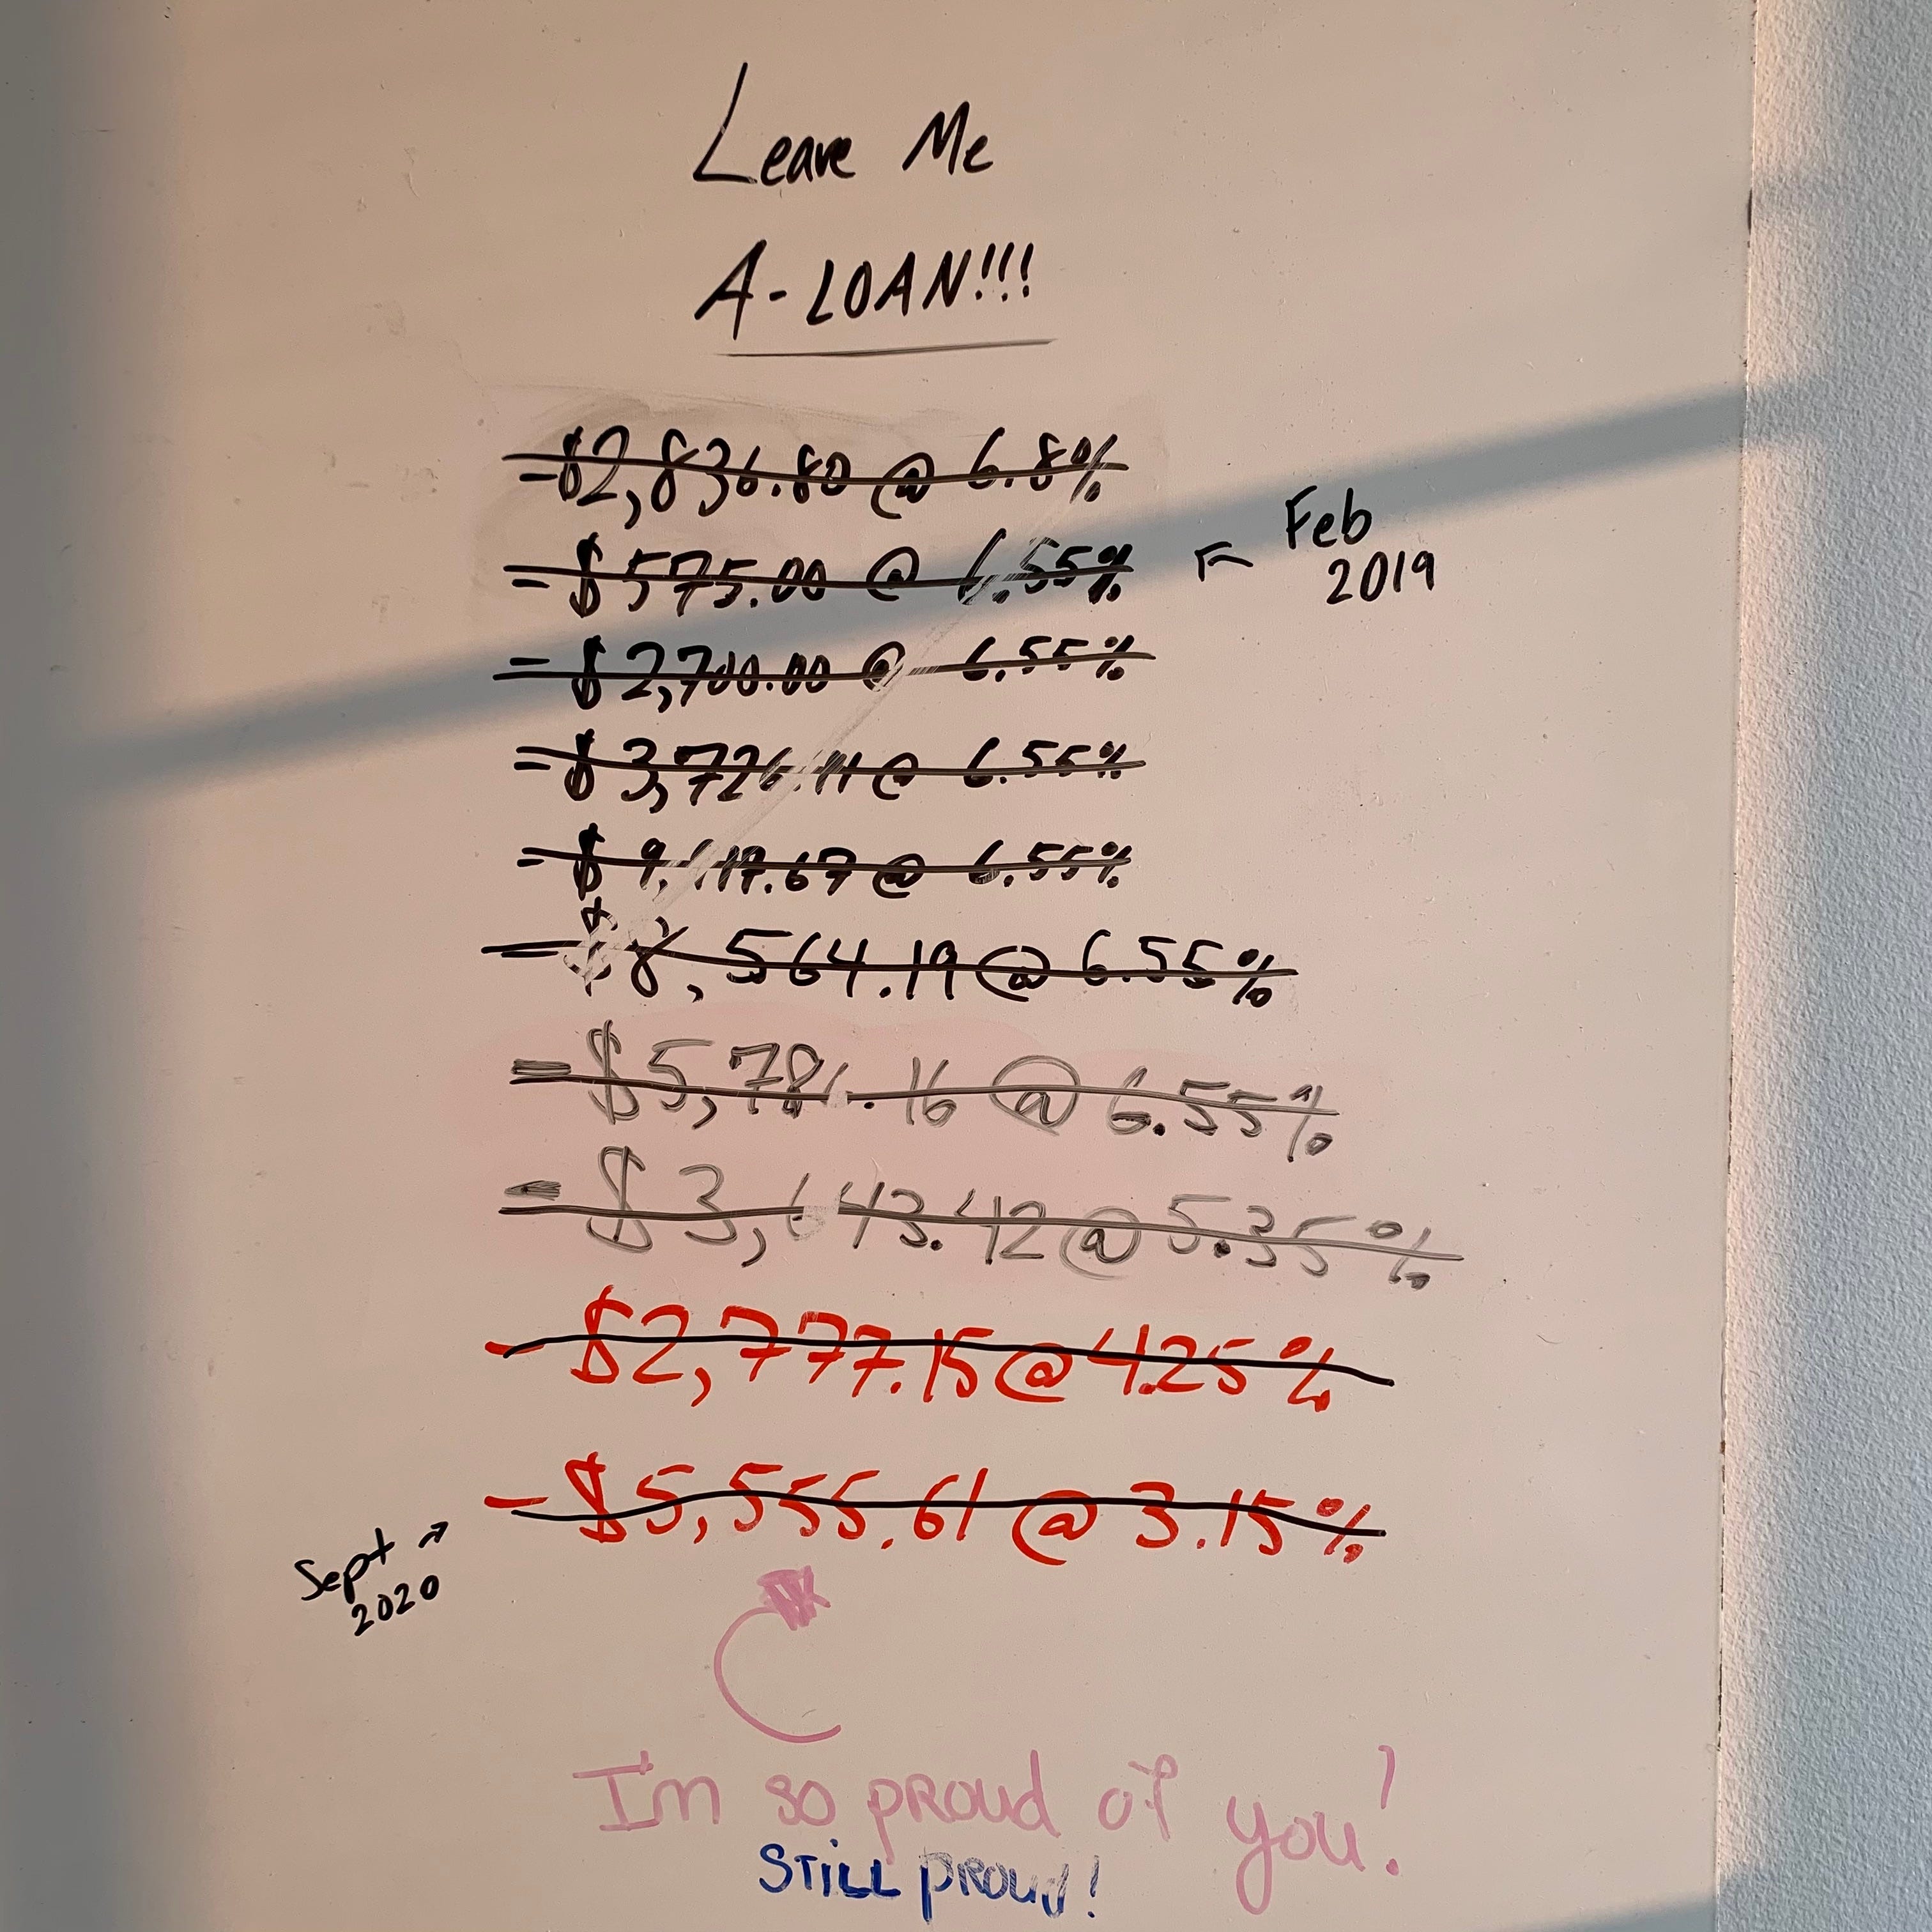 Leave Me
A-LOAN!!!
- $2,836.80 @ 6.8%
- $575.00 @ 6.55%
Feb
2019
- $2,700.00 @ 6.55%
- $3,726.11 @ 6.55%
- $ @ 6.55%
- $8,564.19 @ 6.55%
- $5,786.16 @ 6.55%
- $3,643.42 @ 5.35%
- $2,777.15 @ 4.25%
- $5,555.61 @ 3.15%
Sept
2020
I'm so proud of you!
STILL PROUD!